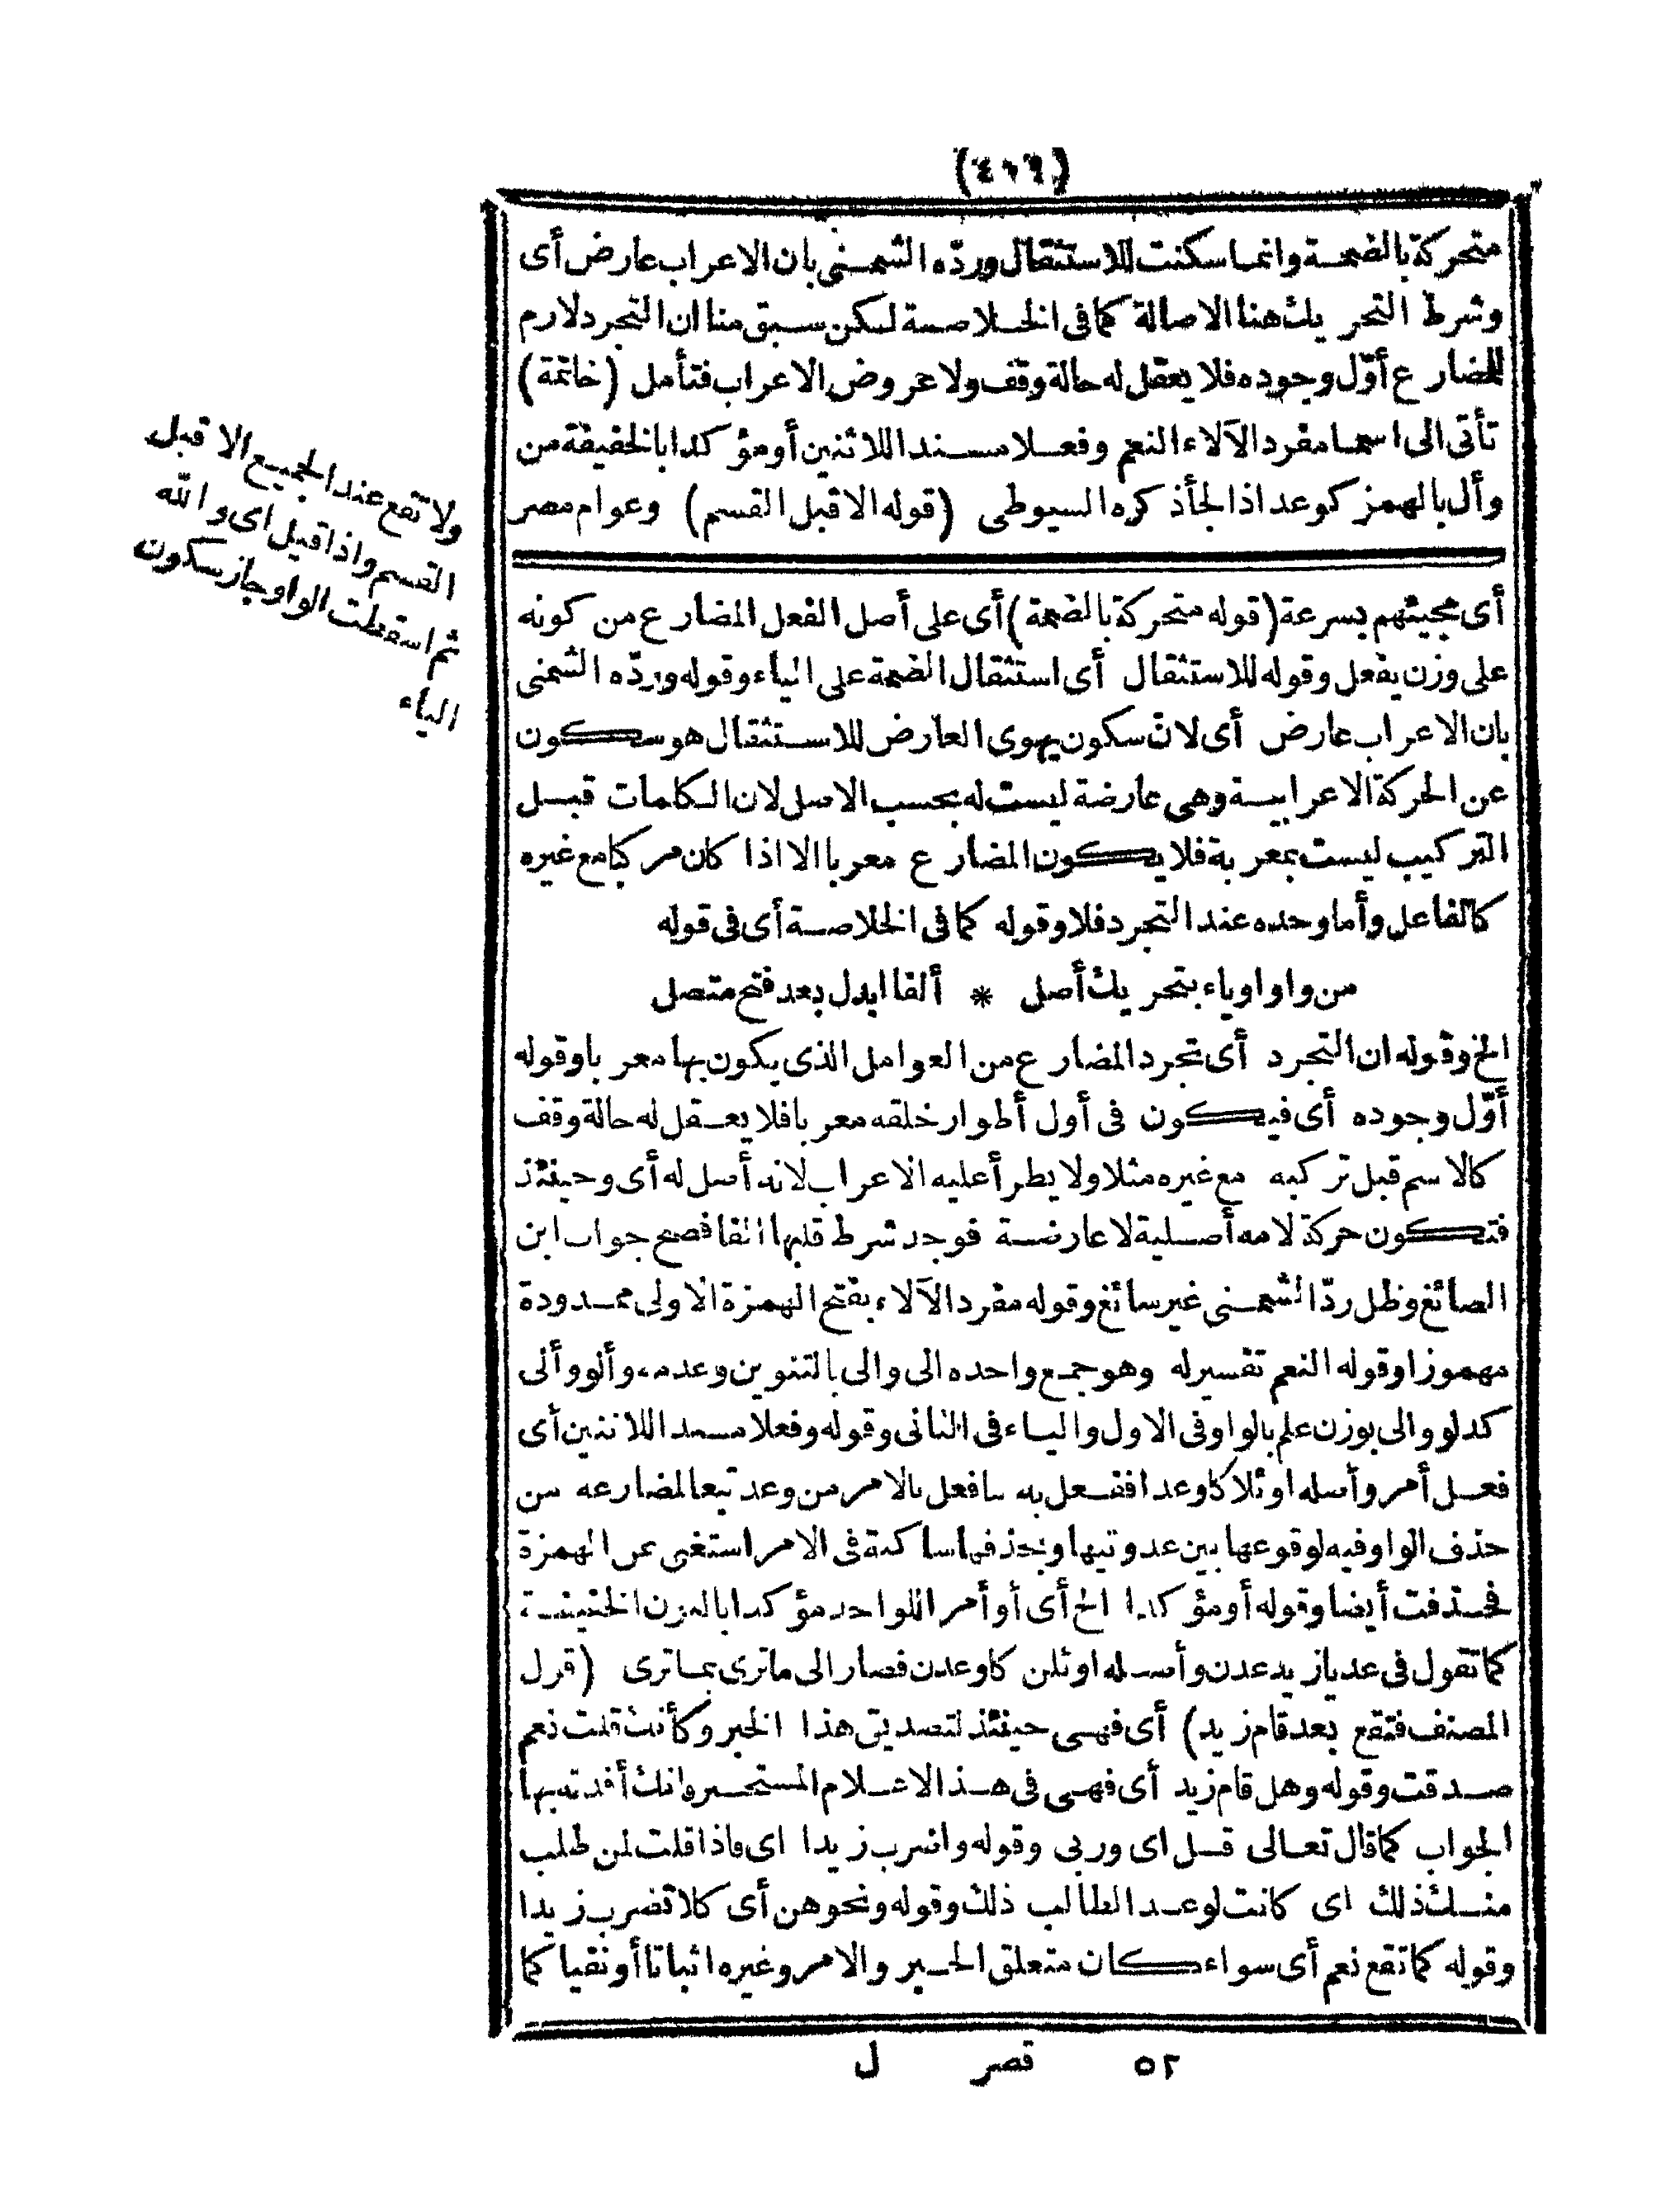 (٤٠٩)
متحركة بالضمة وانما سكنت للاستثقال ورده الشمنى بان الاعراب عارض أى
وشرط التحريك هنا الاصالة كما فى الخلاصة لكن سبق منا ان التجرد لازم
للمضارع أوّل وجوده فلا يعقل له حالة وقف ولا عروض الاعراب فتأمل (خاتمة)
تأتى الى اسما مفرد الآلاء النعم وفعلا مسندا للاثنين أو مؤكدا بالخفيفة من
وأل بالهمز كوعد اذا لجأ ذكره السيوطى (قوله الا قبل القسم) وعوام مصر
ولا تقع عند الجميع الا قبل
القسم واذا قيل اى والله
ثم اسقطت الواو جاز سكون
الياء
أى مجيئهم بسرعة (قوله متحركة بالضمة) أى على أصل الفعل المضارع من كونه
على وزن يفعل وقوله للاستثقال أى استثقال الضمة على الياء وقوله وردّه الشمنى
بان الاعراب عارض أى لانّ سكون يهوى العارض للاستثقال هو سكون
عن الحركة الاعرابية وهى عارضة ليست له بحسب الاصل لان الكلمات قبل
التركيب ليست بمعربة فلا يكون المضارع معربا الا اذا كان مركبا مع غيره
كالفاعل وأما وحده عند التجرد فلا وقوله كما فى الخلاصة أى فى قوله
من واو او ياء بتحريك أصل * ألفا ابدل بعد فتح متصل
الخ وقوله ان التجرد أى تجرد المضارع من العوامل الذى يكون بها معربا وقوله
أوّل وجوده أى فيكون فى أول أطوار خلقه معربا فلا يعقل له حالة وقف
كالاسم قبل تركبه مع غيره مثلا ولا يطرأ عليه الاعراب لانه أصل له أى وحينئذ
فتكون حركة لامه أصلية لا عارضة فوجد شرط قلبها ألفا فصح جواب ابن
الصائغ وظل ردّ الشمنى غير سائغ وقوله مفرد الآلاء بفتح الهمزة الاولى ممدودة
مهموزا وقوله النعم تفسير له وهو جمع واحده الى والى بالتنوين وعدمه وألو وألى
كدلو والى بوزن علم بالواو فى الاول والياء فى الثانى وقوله وفعلا مسندا للاثنين أى
فعل أمر وأصله اوئلا كاوعدا ففعل به ما فعل بالامر من وعد تبعا لمضارعه من
حذف الواو فيه لوقوعها بين عدوتيها وبحذفها ساكنة فى الامر استغنى عن الهمزة
فحذفت أيضا وقوله أو مؤكدا الخ أى أو أمرا للواحد مؤكدا بالنون الخفيفة
كما تقول فى عد يا زيد عدن وأصله اوئلن كاوعدن فصار الى ما ترى بما ترى (قول
المصنف فتقع بعد قام زيد) أى فهى حينئذ لتصديق هذا الخبر وكأنك قلت نعم
صدقت وقوله وهل قام زيد أى فهى فى هذا لاعلام المستخبر وانك أفدته بها
الجواب كما قال تعالى قل اى وربى وقوله واضرب زيدا اى فاذا قلت لمن طلب
منك ذلك اى كانت لوعد الطالب ذلك وقوله ونحوهن أى كلا تضرب زيدا
وقوله كما تقع نعم أى سواء كان متعلق الخبر والامر وغيره اثباتا أو نفيا كما
٥٢ قصر ل